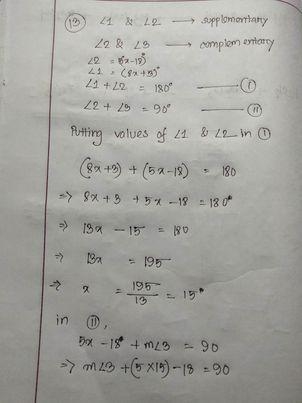 (13) ∠1 & ∠2 → supplementary
∠2 & ∠3 → complementary
∠2 = (5x-18)°
∠1 = (8x+3)°
∠1 + ∠2 = 180° — (I)
∠2 + ∠3 = 90° — (II)
Putting values of ∠1 & ∠2 in (I)
(8x+3) + (5x-18) = 180
=> 8x + 3 + 5x - 18 = 180°
=> 13x - 15 = 180
=> 13x = 195
=> x = 195/13 = 15°
in (II),
5x - 18° + m∠3 = 90
=> m∠3 + (5×15) - 18 = 90